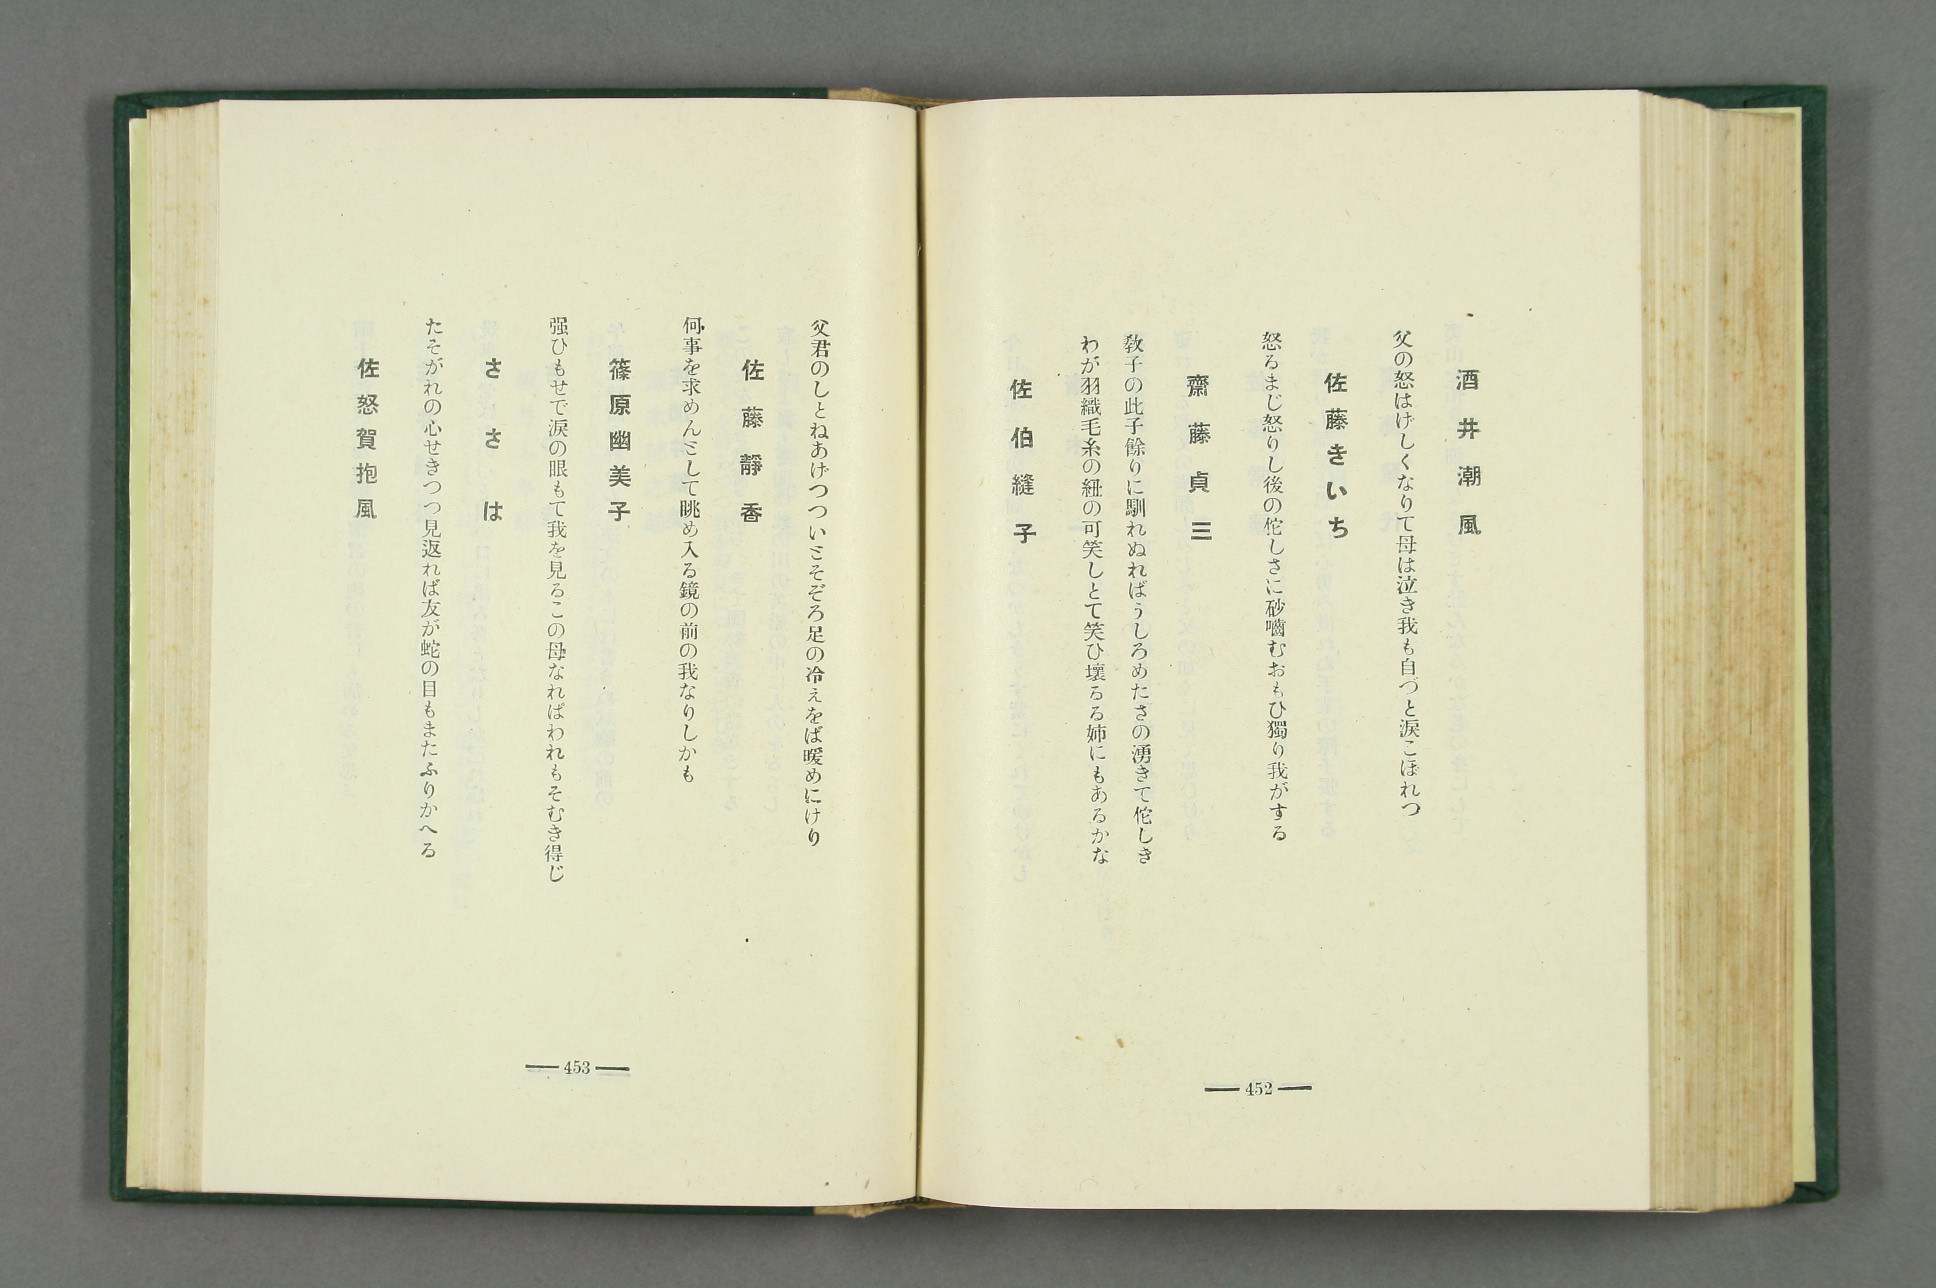 酒井潮風
父の怒はげしくなりて母は泣き我も自づと涙こぼれつ
佐藤きいち
怒るまじ怒りし後の佗しさに砂嚙むおもひ獨り我がする
齋藤貞三
敎子の此子餘りに馴れぬればうしろめたさの湧きて佗しき
わが羽織毛糸の紐の可笑しとて笑ひ壞るる姉にもあるかな
佐伯縫子
452
父君のしとねあげつついとそぞろ足の冷えをば暖めにけり
佐藤靜香
何事を求めんとして眺め入る鏡の前の我なりしかも
篠原幽美子
强ひもせで涙の眼もて我を見るこの母なればわれもそむき得じ
ささは
たそがれの心せきつつ見返れば友が蛇の目もまたふりかへる
佐怒賀抱風
453